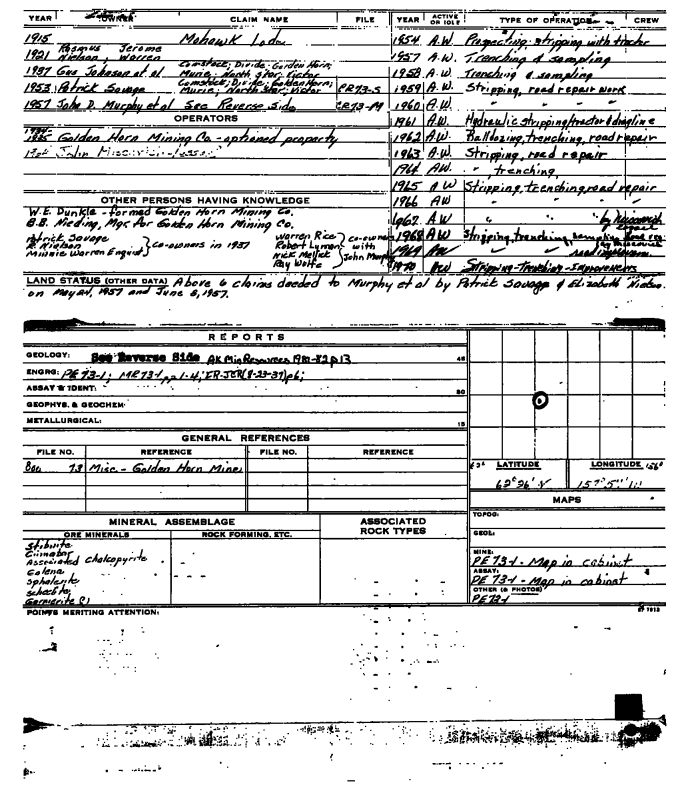 YEAR OWNER CLAIM NAME FILE
1915 Mohawk Lode
1921 Rasmus Jerome
Nielsen, Warren
1937 Gus Johnson et al Comstock; Divide; Golden Horn;
Murie; North Star; Victor
1953 Patrick Savage Comstock; Divide; Golden Horn;
Murie; North Star; Victor PR73-S
1957 John D. Murphy et al See Reverse Side CR73-M
OPERATORS
Golden Horn Mining Co. - optioned property
John
OTHER PERSONS HAVING KNOWLEDGE
W.E. Dunkle - formed Golden Horn Mining Co.
B.B. Nieding, Mgr for Golden Horn Mining Co.
Patrick Savage
R. Nielson
Minnie Warren Enquist } co-owners in 1937
Warren Rice
Robert Lyman
Nick Mellick
Ray Wolfe } co-owners with John Murphy
YEAR ACTIVE OR IDLE TYPE OF OPERATION CREW
1954 A.W. Prospecting; stripping with tractor
1957 A.W. Trenching & sampling
1958 A.W. Trenching & sampling
1959 A.W. Stripping, road repair work
1960 A.W. " " "
1961 A.W. Hydraulic stripping/tractor & dragline
1962 A.W. Bulldozing, trenching, road repair
1963 A.W. Stripping, road repair
1964 AW. " trenching,
1965 AW Stripping, trenching, road repair
1966 AW " " "
1967 A.W " "
1968 AW Stripping, trenching, sampling
1969 AW
1970 AW Stripping-Trenching-Improvements
LAND STATUS (OTHER DATA) Above 6 claims deeded to Murphy et al by Patrick Savage & Elizabeth Nielsen
on May 24, 1957 and June 6, 1957.
REPORTS
GEOLOGY: See Reverse Side AK Min Resources 1981-82 p 13
ENGRG: PE 73-1; MR 73-1, pp 1-4; IR-JER(8-23-37)p6;
ASSAY & IDENT:
GEOPHYS. & GEOCHEM:
METALLURGICAL:
GENERAL REFERENCES
FILE NO. REFERENCE FILE NO. REFERENCE
73 Misc. - Golden Horn Mines
LATITUDE LONGITUDE 156°
62°26' N
MAPS
TOPOG:
GEOL:
MINE:
PE 73-1 - Map in cabinet
ASSAY:
PE 73-1 - Map in cabinet
OTHER (& PHOTOS)
PE 73-1
MINERAL ASSEMBLAGE ASSOCIATED ROCK TYPES
ORE MINERALS ROCK FORMING, ETC.
Stibnite
Cinnabar
Associated chalcopyrite
Galena
Sphalerite
Scheelite
Garnierite (?)
POINTS MERITING ATTENTION: